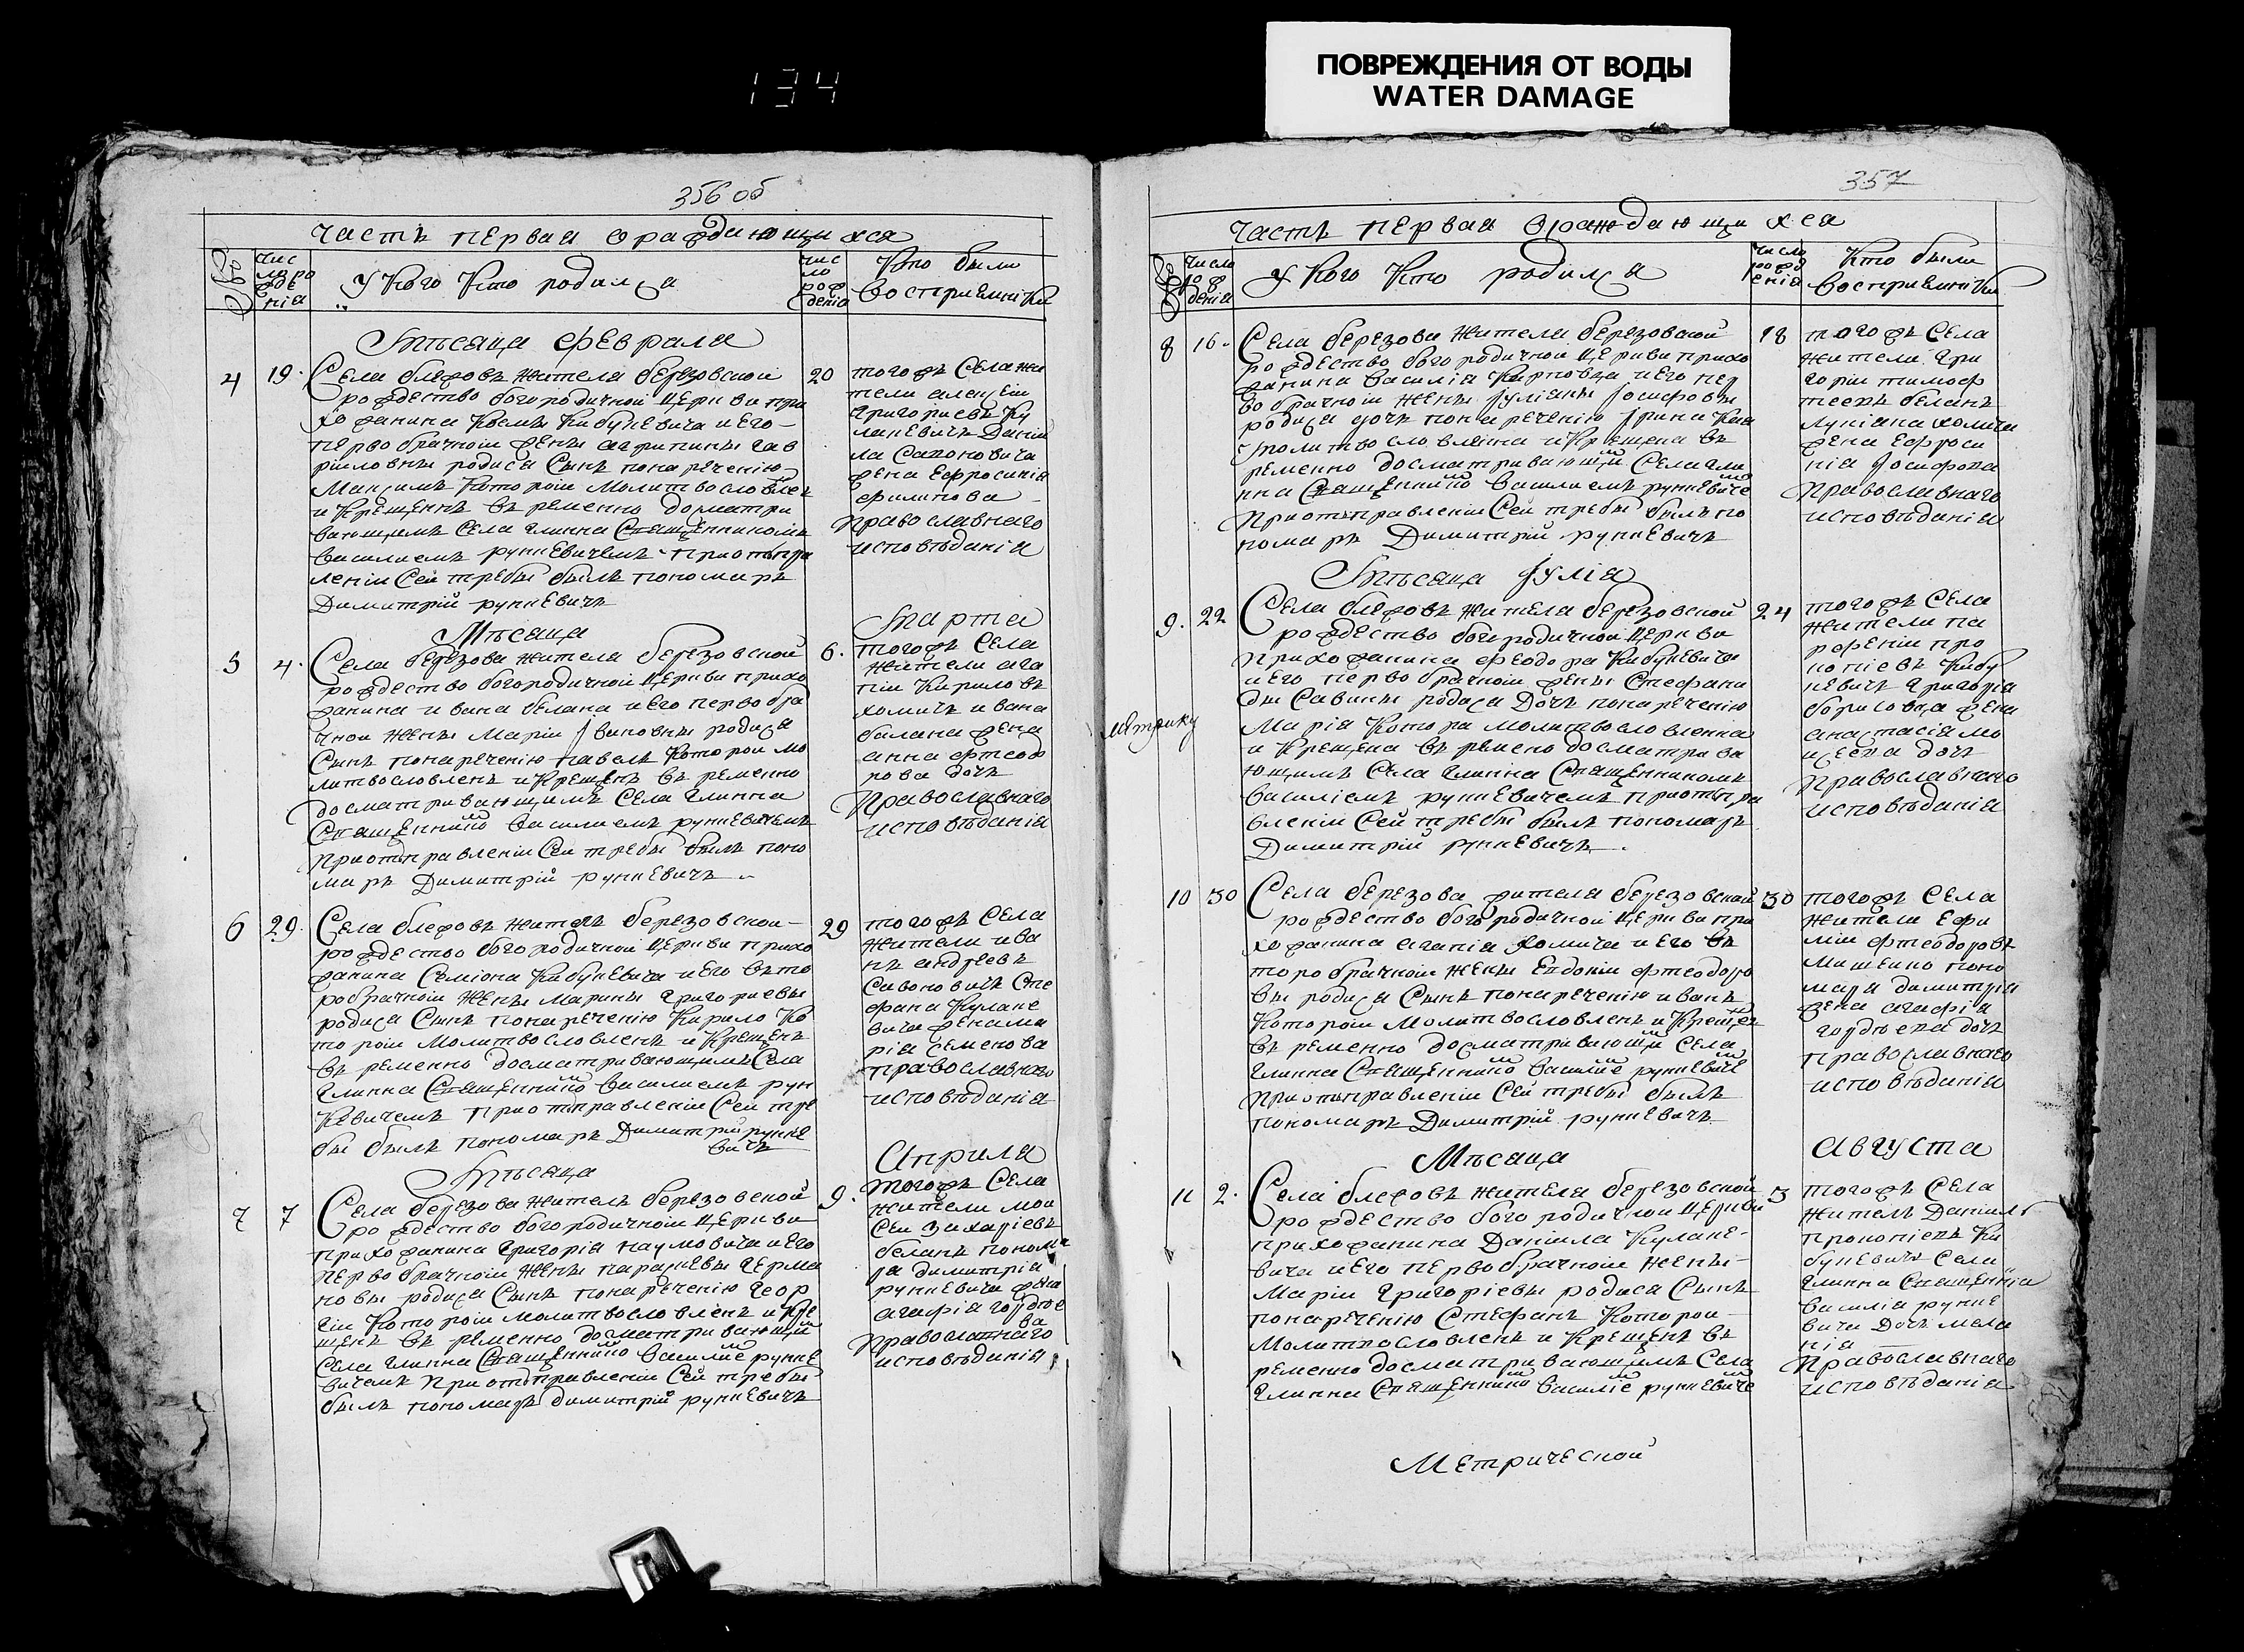 134
ПОВРЕЖДЕНИЯ ОТ ВОДЫ
WATER DAMAGE
356 об
Часть первая о раждающихся
Числ
ло ро
жде
нія
У Кого Кто родился
чис
ло
рож
денія
Кто были
Восприемники
Мѣсяца Февраля
4 19. Села блежовъ жителя березовской 20
рождество богородичной Церкви при
хожанина Космы Кибукевича и Его
перво брачной жены агрипины гав
риловны родися Сынъ понаречению
Максимъ Которои Молитвословлен
и Крещенъ въременно досматри
вающимъ Села глинна Священникомъ
Василиемъ рункевичемъ приотпра
лении Сеи требы былъ пономарь
Димитрій рункевичъ
тогожъ Села жи
тели алексѣи
григориевъ Ку
ланевичъ Дании
ла Сахоновича
жена Ефросиния
филипова
Православнаго
исповѣданія
Мѣсяца Марта
5 4. Села березова жителя березовской 6.
рождество богородичной Церкви прихо
жанина ивана белана иЕго первобра
чнои жены Марии Ивановны родися
Сынъ понаречению павелъ Которои мо
литвословленъ и Крещенъ въременно
досматривающимъ Села глинна
Священнико Василиемъ рункевичемъ
приотправлении Сеи требы былъ поно
марь Димитрій рункевичъ
тогожъ Села
жители ага
пии Кириловъ
хомичъ ивана
балана жена
анна фтеод
рова дочъ
Православнаго
исповѣданія
6 29. Села блежовъ жителя березовскои 29
рождество богородичной Церкви прихо
жанина Семиона Кибукевича иЕго въто
робрачной жены Марины григориевы
родися Сынъ понаречению Кирило Ко
торои Молитвословленъ и Крещенъ
въременно досматривающимъ Села
глинна Священнико Василиемъ рун
Кевичемъ приотправлении Сеи тре
бы былъ пономарь Димитрій рунке
вичъ
тогожъ Села
жители ива
нъ андреевъ
Савоновичъ Сте
фана Кулане
вича жена ма
рія Семенова
православнаго
исповѣданія
Мѣсяца Априля
7 7 Села березова жителя березовской 9.
рождество богородичной Церкви
прихожанина григорія наумовича иЕго
первобрачной жены параскевы герма
новы родися Сынъ понаречению геор
гіи Которои молитвословленъ и Кре
щенъ въременно досматривающи
Села глинна Священнико Василие рунке
вичемъ приотправлении Сеи требы
былъ пономарь димитрій рункевичъ
тогожъ Села
жители мои
Сеи захаріевъ
беланъ понома
ря димитрія
рункевича жена
агафія гордѣе
ва
Православнаго
исповѣданія
357
Часть первая о раждающихся
число
рож
денія
У Кого Кто родился
число
рожд
енія
Кто были
Восприемники
8 16. Села березова жителя березовской 18
рождество богородичной Церкви прихо
жанина Василія Карповца иЕго пер
вобрачной жены Іулиании Іосифовы
родися дочъ понаречению Ірина Коя
молитвословлена и Крещена въ
ременно досматривающи Села гли
нна Священнико Василиемъ рункевиче
приотправлении Сеи требы былъ по
номарь Димитрій рункевичъ
тогожъ Села
жители гри
горіи тимоф
теевъ беланъ
Лукіана хомича
жена Ефроси
нія Іосифова
Православнаго
исповѣданія
Мѣсяца Іулія
9. 22 Села блежовъ жителя березовской 24
рождество богородичной Церкви
прихожанина феодора Кибукевича
иЕго первобрачной жены Стефани
ды Савины родися Дочъ понаречению
Марія Котора молитвословленна
и Крещена въремено досматрива
ющимъ Села глинна Священникомъ
Василіемъ рункевичемъ приотпра
влении Сеи требы былъ пономарь
Димитрій рункевичъ.
тогожъ Села
жители па
рфении про
копіевъ Кибу
кевичъ григорія
борисовца жена
анастасія мо
исеева дочъ
Православнаго
исповѣданія
метрику
10 30 Села березова жителя березовской 30
рождество богородичной Церкви при
хожанина агапія хомича иЕго въ
торобрачной жены Евдокии фтеодоро
вы родися Сынъ понаречению иванъ
Которои Молитвословленъ и Крещен
въременно досматривающи Села
глинна Священнико Василие рункевиче
приотправлении Сеи требы былъ
пономарь Димитрій рункевичъ
тогожъ Села
жители Ефи
мии фтеодоровъ
Машенно поно
маря димитрія
жена агафія
гордѣева дочъ
православнаго
исповѣданія
Мѣсяца Августа
11 2. Села блежовъ жителя березовской 3
рождество богородичной Церкви
прихожанина Даниила Кулане-
вича иЕго первобрачной жены-
Марии григоріевы родися Сынъ
понаречению Стефанъ Которои
Молитвословленъ и Крещенъ въ
ременно досматривающимъ Села
глинна Священнико Василіе рункевиче
тогожъ Села
житель Даниилъ
прокопіевъ Ки
букевичъ Села
глинна Священніка
Василія рунке
вича Дочъ мела
нія
Православнаго
исповѣданія
Метрической